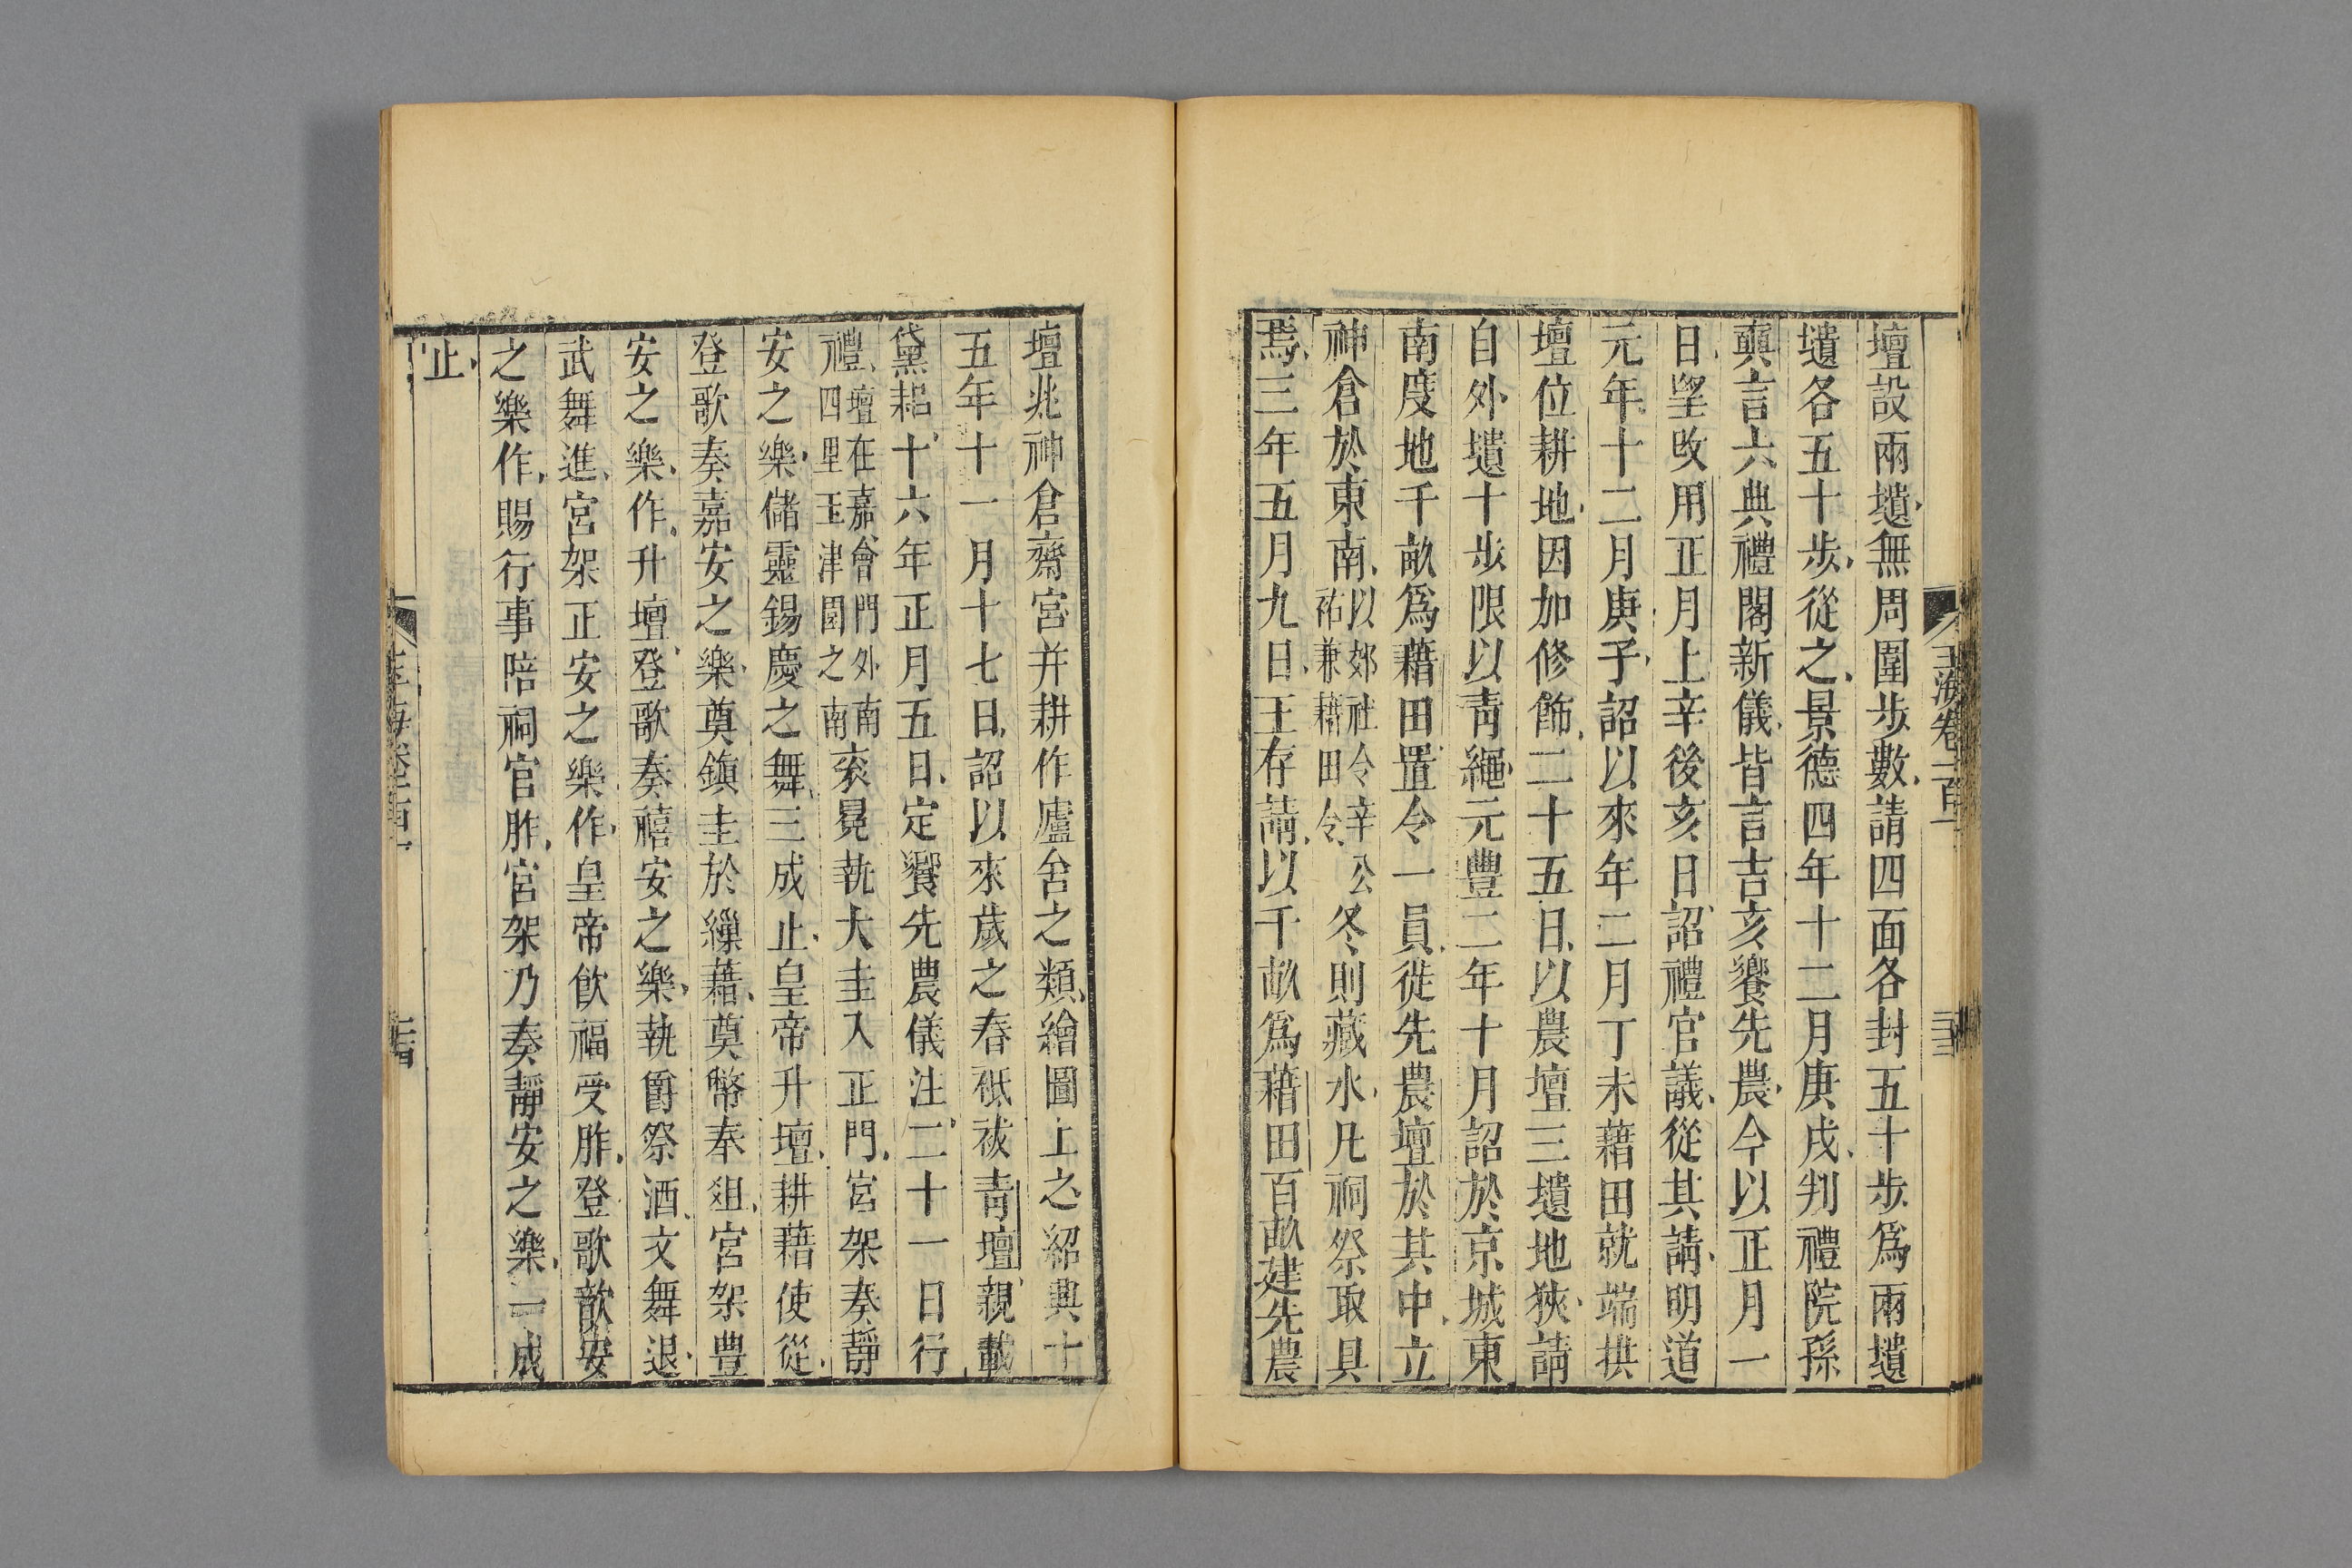 壇設兩壝無周圍步數請四面各封五十步爲兩壝
壝各五十步從之景德四年十二月庚戌判禮院孫
奭言六典禮閣新儀皆言吉亥饗先農今以正月一
日望改用正月上辛後亥日詔禮官議從其請明道
元年十二月庚子詔以來年二月丁未藉田就端拱
壇位耕地因加修飾二十五日以農壇三壝地狹請
自外壝十步限以靑繩元豐二年十月詔於京城東
南度地千畝爲藉田置令一員徙先農壇於其中立
神倉於東南以郊社令辛公
祐兼藉田令冬則藏冰凡祠祭取具
焉三年五月九日王存請以千畝爲藉田百畝建先農
壇兆神倉齋宮并耕作廬舍之類繪圖上之紹興十
五年十一月十七日詔以來歲之春祗祓靑壇親載
黛耜十六年正月五日定饗先農儀注二十一日行
禮壇在嘉會門外南
四里玉津園之南袞冕執大圭入正門宮架奏靜
安之樂儲靈錫慶之舞三成止皇帝升壇耕藉使從
登歌奏嘉安之樂奠鎮圭於繅藉奠幣奉俎宮架豊
安之樂作升壇登歌奏禧安之樂執爵祭酒文舞退
武舞進宮架正安之樂作皇帝飮福受胙登歌歆安
之樂作賜行事陪祠官胙宮架乃奏靜安之樂一成
止